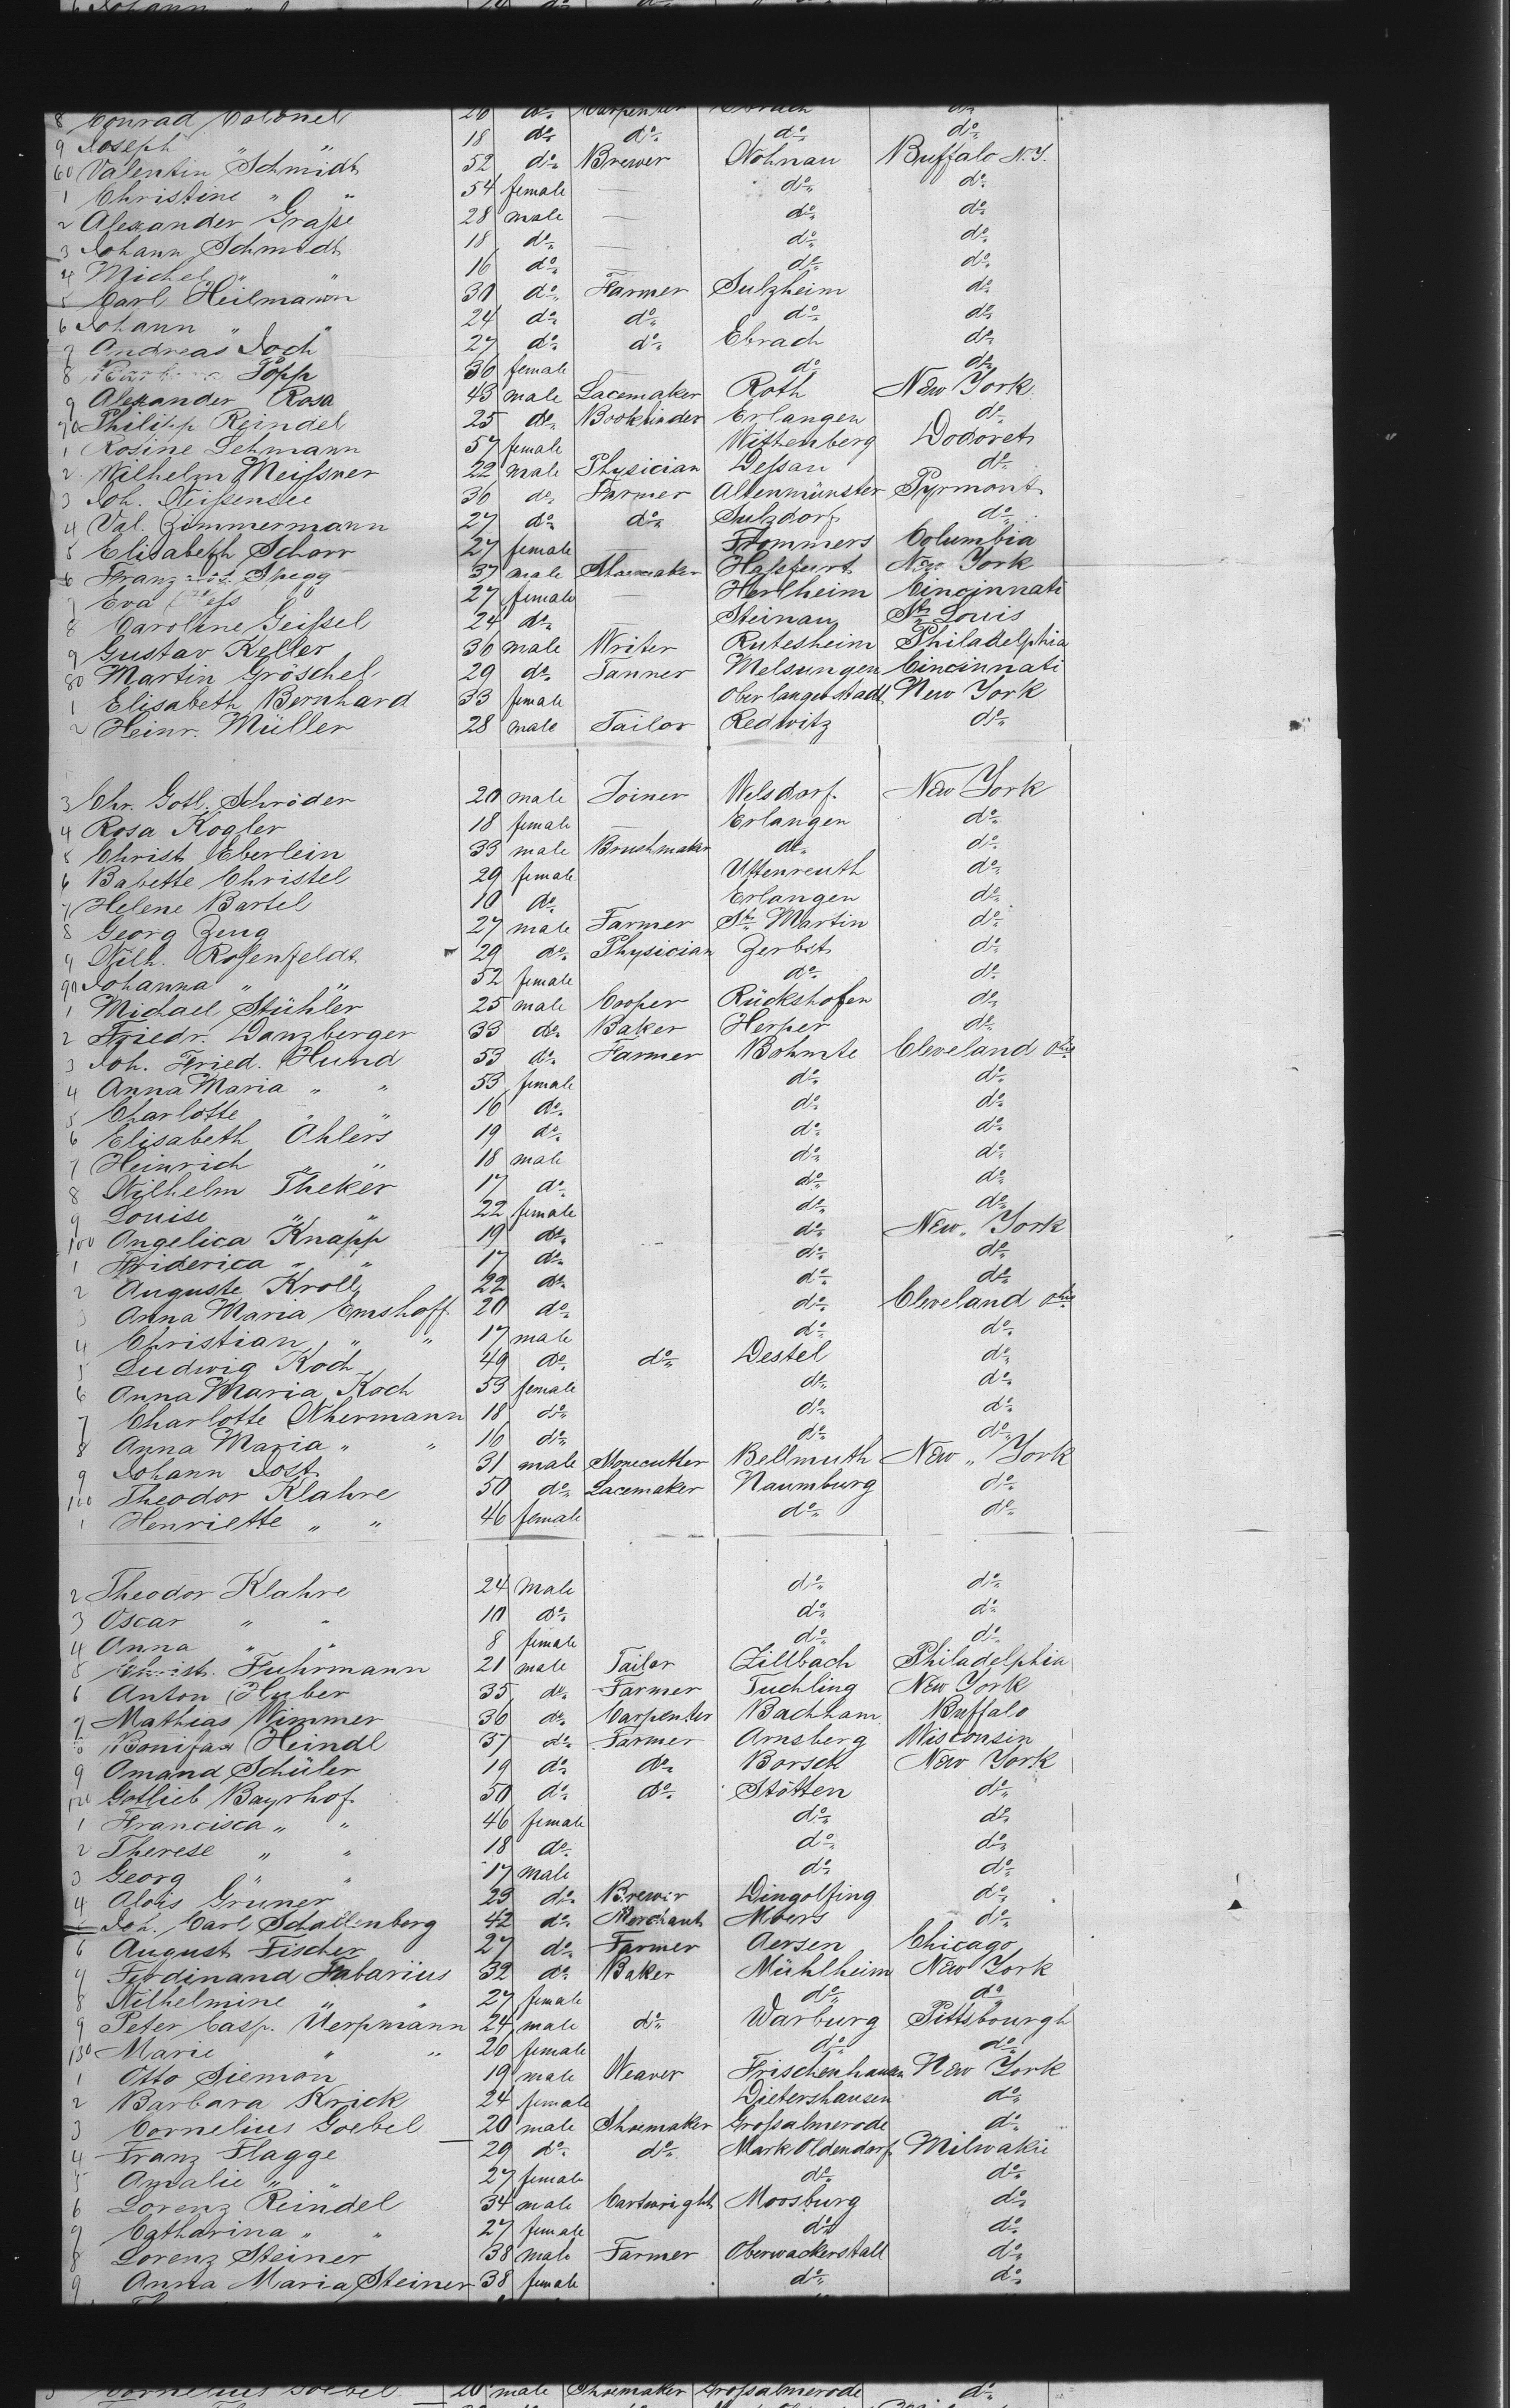 6 Johann " " 20 do do do
8 Conrad Colonel 26 do Carpenter Ebrach do
9 Joseph " " 18 do do do do
60 Valentin Schmidt 52 do Brewer Wohnau Buffalo N.Y.
1 Christine " " 54 female — do do
2 Alexander Graße 28 male — do do
3 Johann Schmidt 18 do — do do
4 Michel " " 16 do — do do
5 Carl Heilmann 30 do Farmer Sulzheim do
6 Johann " " 24 do do do do
7 Andreas Joch 27 do do Ebrach do
8 Topp 36 female do do
9 Alexander Rosa 43 male Lacemaker Roth New York
70 Philipp Reindel 25 do Bookbinder Erlangen do
1 Rosine Lehmann 57 female Wittenberg Dodoret
2 Wilhelm Meißner 22 male Physician Deßau do
3 Joh. Weißensee 36 do Farmer Altenmünster Pyrmont
4 Val. Zimmermann 27 do do Sulzdorf do
5 Elisabeth Schorr 27 female Frommers Columbia
6 Franz Spegg 37 male Shoemaker Haßfurt New York
7 Eva 27 female — Herlheim Cincinnati
8 Caroline Geißel 24 do Steinau St. Louis
9 Gustav Keller 36 male Writer Rutesheim Philadelphia
80 Martin Gröschel 29 do Tanner Melsungen Cincinnati
1 Elisabeth Bernhard 33 female Oberlangenstadt New York
2 Heinr. Müller 28 male Tailor Redwitz do
3 Chr. Gotl. Schröder 20 male Joiner Welsdorf New York
4 Rosa Kogler 18 female — Erlangen do
5 Christ Eberlein 33 male Brushmaker do do
6 Babette Christel 29 female Uttenreuth do
7 Helene Bartel 10 do Erlangen do
8 Georg Zeug 27 male Farmer St. Martin do
9 Wilh. Roßenfeldt 29 do Physician Zerbst do
90 Johanna " " 52 female do do
1 Michael Stühler 25 male Cooper Rückshofen do
2 Friedr. Danzberger 33 do Baker Herper do
3 Joh. Fried. Hund 53 do Farmer Bohmte Cleveland Ohio
4 Anna Maria " " 53 female do do
5 Charlotte " " 16 do do do
6 Elisabeth Ahlers 19 do do do
7 Heinrich " " 18 male do do
8 Wilhelm Theker 17 do do do
9 Louise " " 22 female do do
100 Angelica Knapp 19 do do New York
1 Friderica " " 17 do do do
2 Auguste Kroll 22 do do do
3 Anna Maria Emshoff 20 do do Cleveland Ohio
4 Christian " " 17 male do do
5 Ludwig Koch 49 do do Destel do
6 Anna Maria Koch 53 female do do
7 Charlotte Nhermann 18 do do do
8 Anna Maria " " 16 do do do
9 Johann Jost 31 male Stonecutter Bellmuth New York
110 Theodor Klahre 50 do Lacemaker Naumburg do
1 Henriette " " 46 female do do
2 Theodor Klahre 24 male do do
3 Oscar " " 10 do do do
4 Anna " " 8 female do do
5 Fuhrmann 21 male Tailor Zillbach Philadelphia
6 Anton Huber 35 do Farmer Tuchling New York
7 Mathias Wimmer 36 do Carpenter Bachham Buffalo
8 Bonifax Heindl 37 do Farmer Arnsberg Wisconsin
9 Omand Schüler 19 do do Borsch New York
120 Gotlieb Bayrhof 50 do do Stötten do
1 Francisca " " 46 female do do
2 Therese " " 18 do do do
3 Georg " " 17 male do do
4 Alois Gruner 23 do Brewer Dingolfing do
Joh. Carl Schallenberg 42 do Merchant Moers do
6 August Fischer 27 do Farmer Aersen Chicago
7 Ferdinand Fabarius 32 do Baker Mühlheim New York
8 Wilhelmine " " 27 female do do
9 Peter Casp. Werpmann 24 male do Warburg Pittsbourgh
130 Marie " " 26 female do do
1 Otto Siemon 19 male Weaver Frischenhausen New York
2 Barbara Krick 24 female Dietershausen do
3 Cornelius Goebel 20 male Shoemaker Großalmerode do
4 Franz Flagge 29 do do Mark Oldendorf Milwakie
5 Amalie " " 27 female do do
6 Lorenz Reindel 34 male Cartwright Moosburg do
7 Catharina " " 27 female do do
8 Lorenz Steiner 38 male Farmer Oberwackerstall do
9 Anna Maria Steiner 38 female do do
3 Cornelius Goebel 20 male Shoemaker Großalmerode do